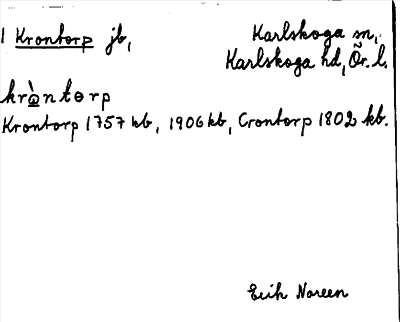 1 Krontorp jb, Karlskoga sn,
Karlskoga hd, Ör. l.
kràntorp
Krontorp 1757 kb, 1906 kb, Crontorp 1802 kb.
Erik Noreen